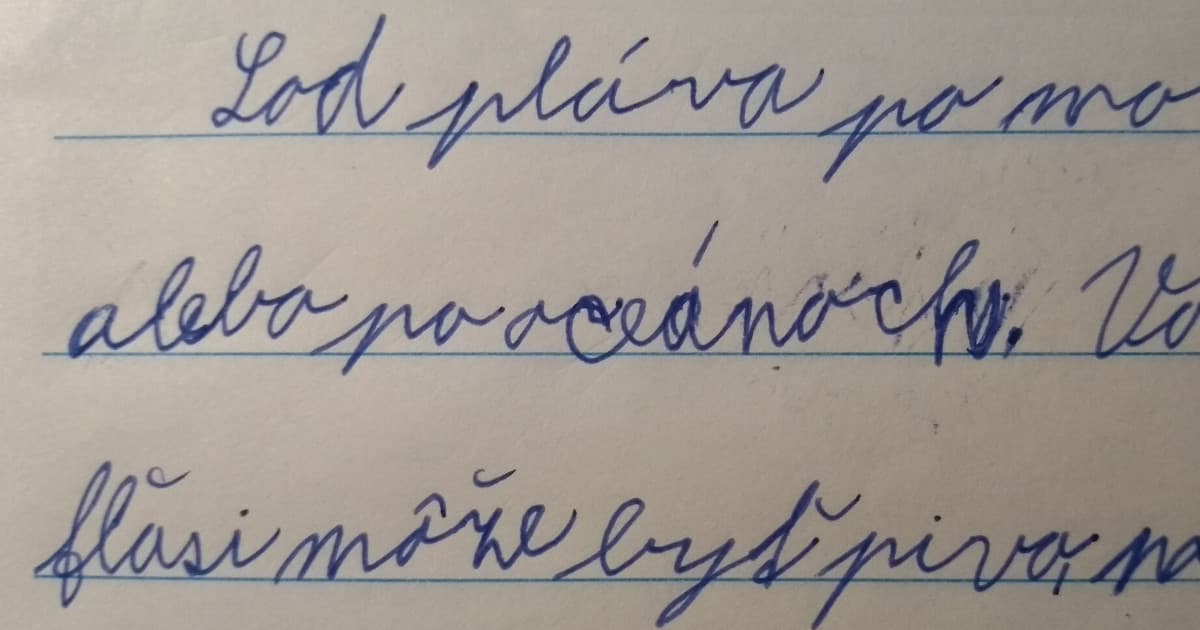 Lod pláva po mo
alebo po oceánoch. Vo
flăsi môže byť pivo, no